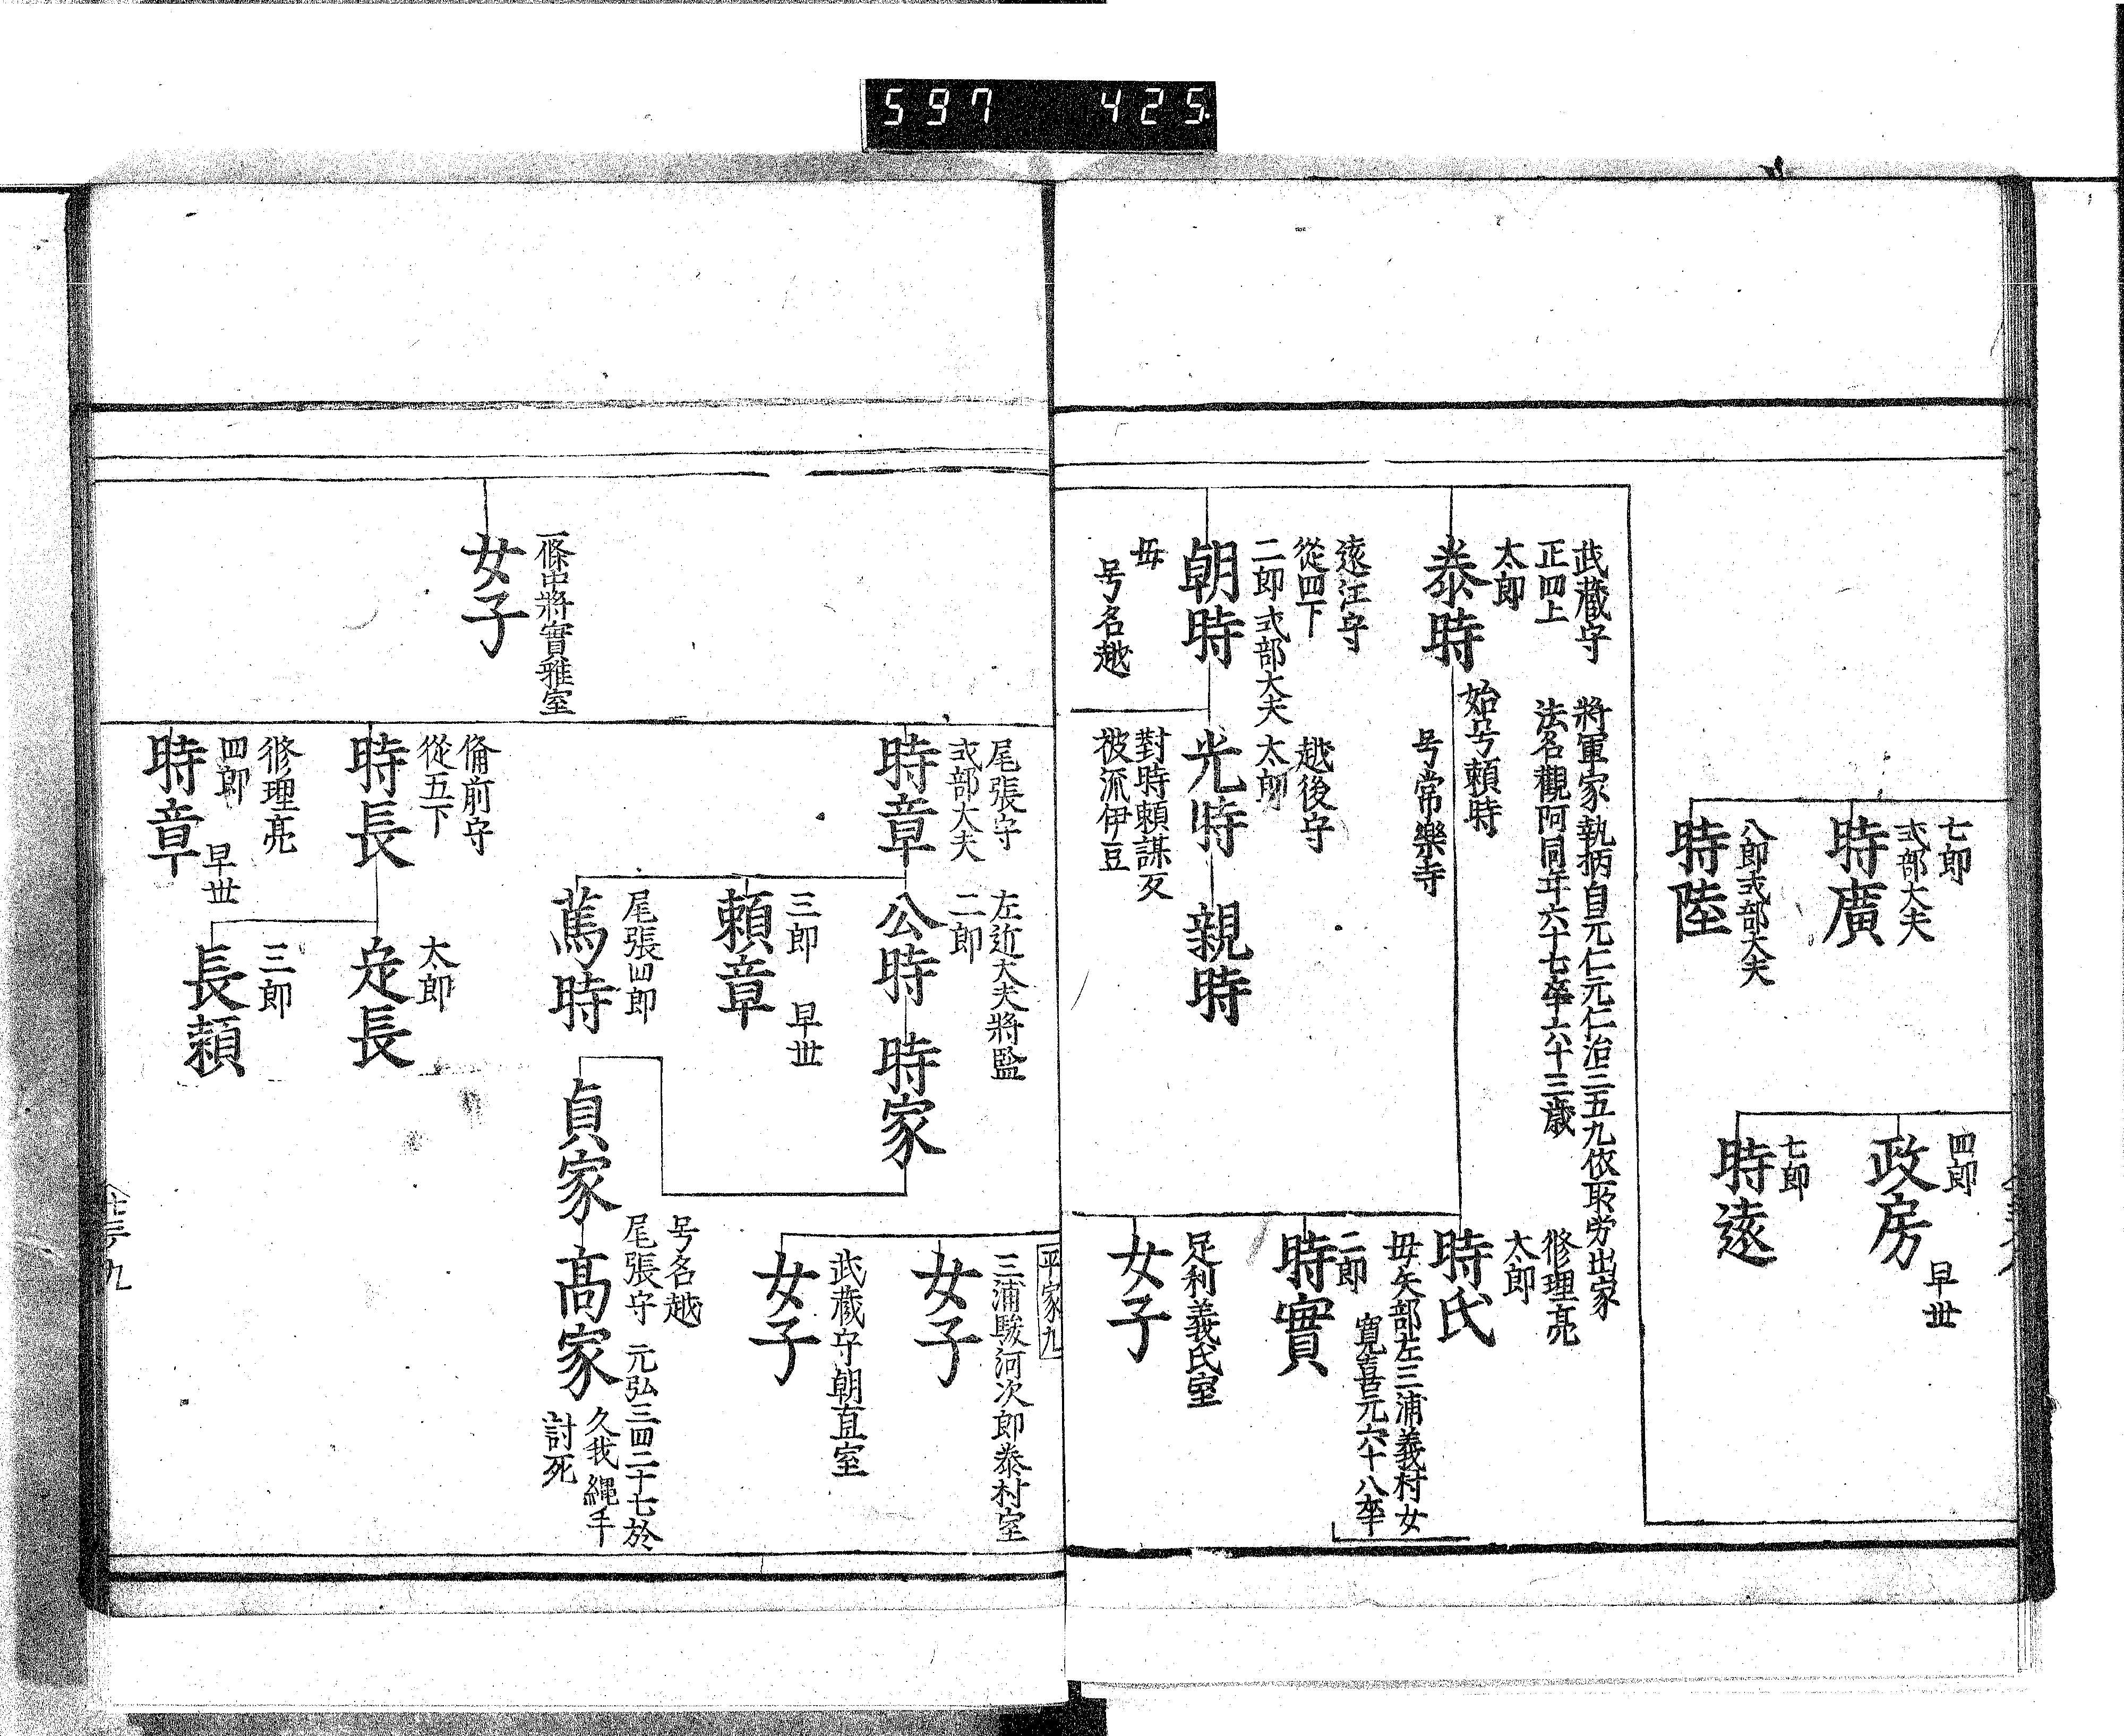 597 425
七郎
式部大夫
時廣
八郎式部大夫
時陸
四郎
政房
早世
七郎
時遠
武藏守
正四上
太郎
泰時
將軍家執柄自元仁元仁治三五九依所労出家
法名觀阿同年六十七卒六十三歳
始号頼時
号常樂寺
修理亮
太郎
時氏
母矢部左三浦義村女
寛喜元六十八卒
二郎
時實
足利義氏室
女子
遠江守
從四下
二郎式部大夫
朝時
母
号名越
越後守
太郎
光時
對時頼謀反
被流伊豆
親時
平家九
三浦駿河次郎泰村室
女子
武藏守朝直室
女子
尾張守
式部大夫
時章
左近大夫將監
二郎
公時
時家
三郎
早世
頼章
尾張四郎
篤時
貞家
号名越
尾張守
高家
元弘三四二十七於
久我縄手
討死
一條中將實雅室
女子
備前守
從五下
時長
太郎
定長
三郎
長頼
修理亮
四郎
早世
時章